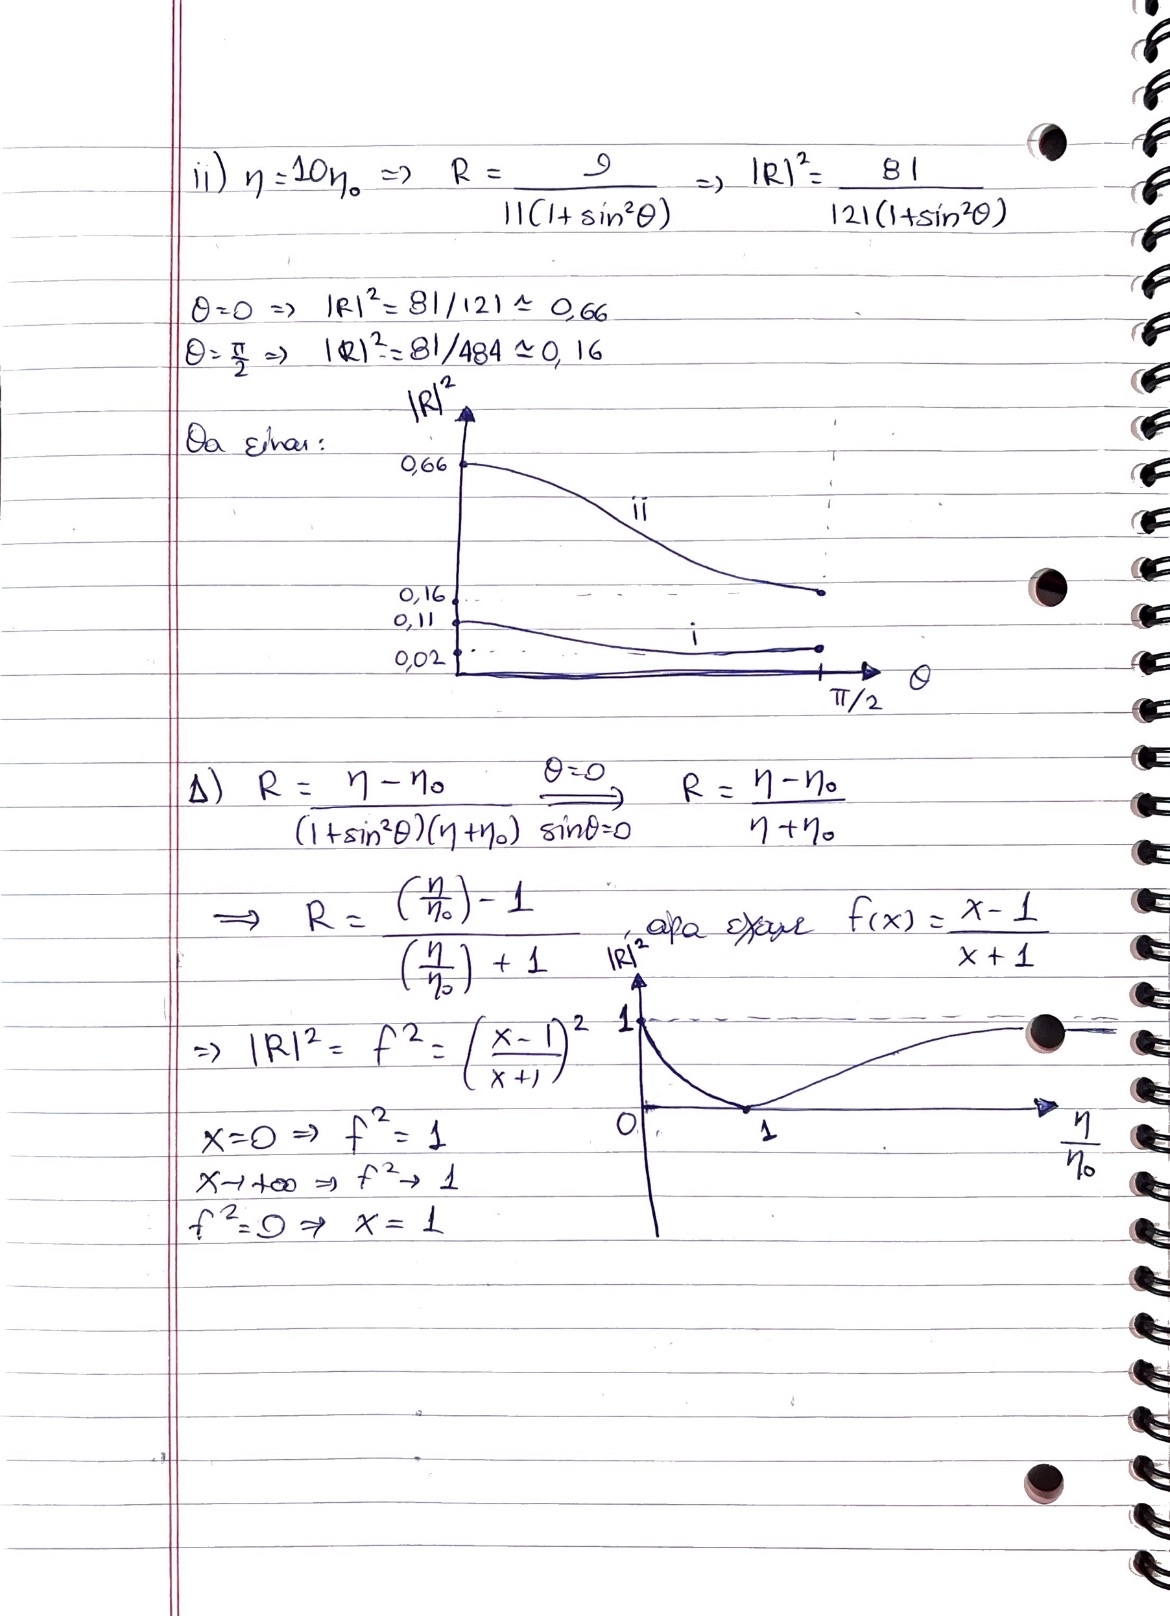 ii) η=10η₀ => R = 9/(11(1+sin²θ)) => |R|² = 81/(121(1+sin²θ))
θ=0 => |R|² = 81/121 ≃ 0,66
θ=π/2 => |R|² = 81/484 ≃ 0,16
Θα είναι:
|R|²
0,66
ii
0,16
0,11
i
0,02
π/2
θ
Δ) R = (η-η₀)/((1+sin²θ)(η+η₀)) θ=0 ⟹ sinθ=0 R = (η-η₀)/(η+η₀)
⟹ R = ((η/η₀)-1)/((η/η₀)+1) , αρα εχουμε f(x) = (x-1)/(x+1)
=> |R|² = f² = ((x-1)/(x+1))²
|R|²
1
0
1
η/η₀
x=0 => f² = 1
x→+∞ => f² → 1
f²=0 => x = 1